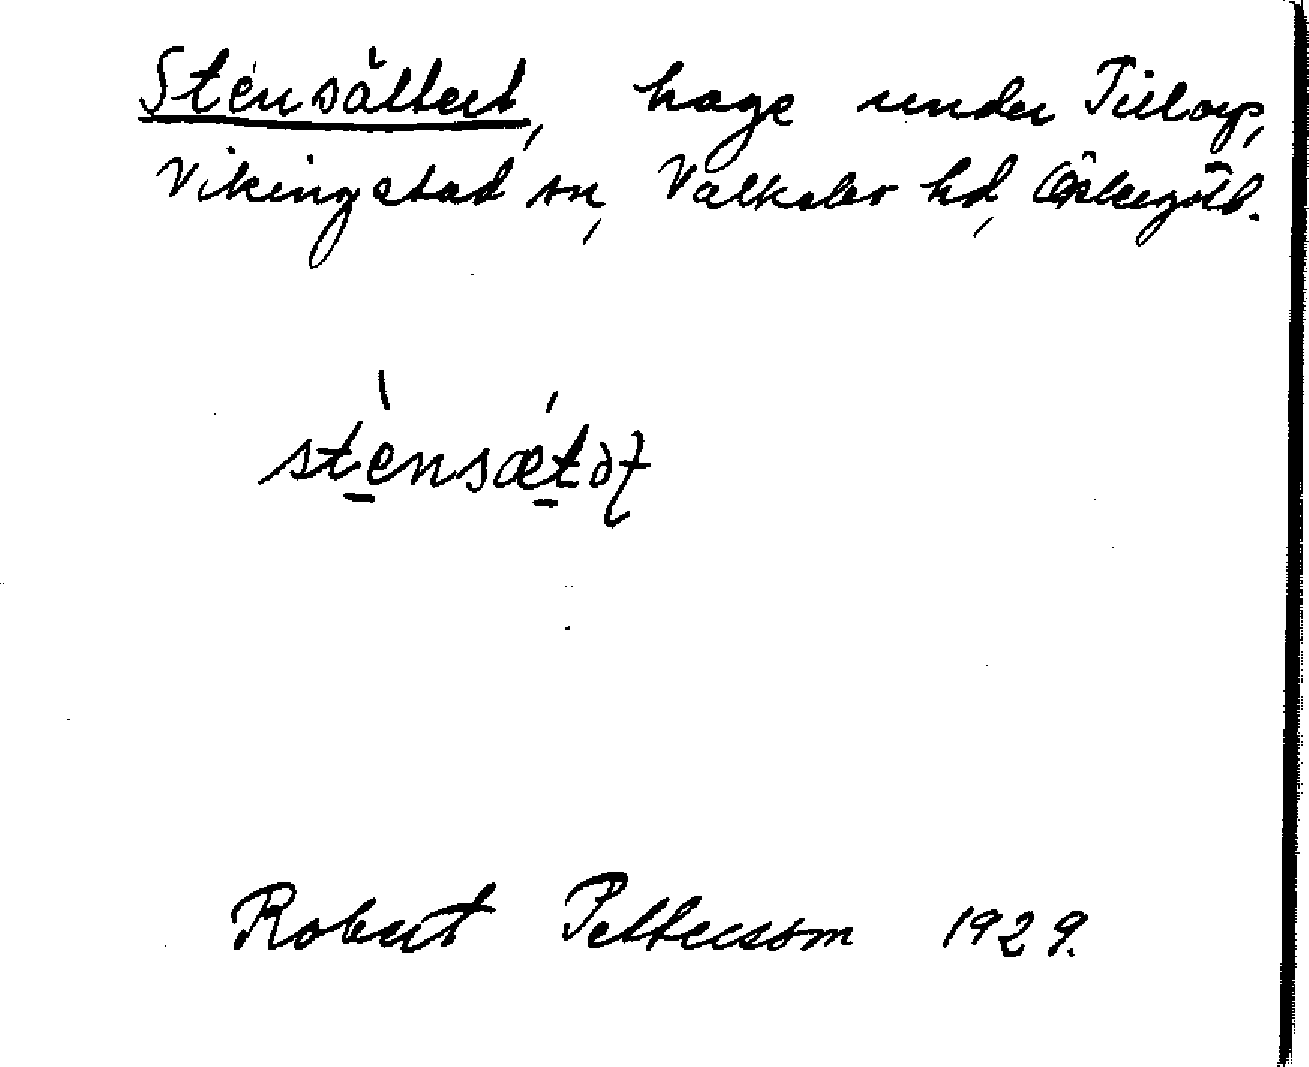 Stensättert, hage under Tillorp,
Vikingstad sn, Valkebo hd, Östergötl.
Robert Pettersson 1929.